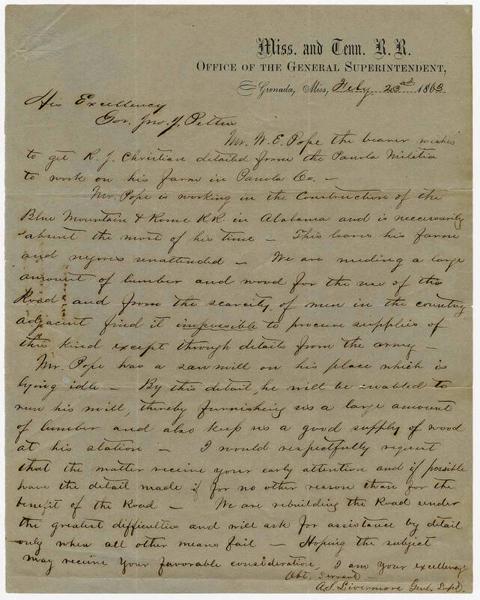 Miss. and Tenn. R. R.
OFFICE OF THE GENERAL SUPERINTENDENT,
Grenada, Miss, Feby 23rd 1863
His Excellency
Gov. Jno. J. Pettus
Mr. W. E. Pope the bearer wishes
to get R. J. Christian detailed from the Panola Militia
to work on his farm in Panola Co. —
Mr. Pope is working in the Construction of the
Blue Mountain & Rome RR in Alabama and is necessarily
absent the most of his time — This leaves his farm
and negroes unattended — We are needing a large
amount of lumber and wood for the use of the
Road and from the scarcity of men in the country
adjacent find it impossible to procure supplies of
this kind except through details from the army —
Mr. Pope has a saw mill on his place which is
lying idle — By this detail, he will be enabled to
run his mill, thereby furnishing us a large amount
of lumber and also keep us a good supply of wood
at his station — I would respectfully request
that the matter receive your early attention and if possible
have the detail made if for no other reason than for the
benefit of the Road — We are rebuilding the Road under
the greatest difficulties and will ask for assistance by detail
only when all other means fail — Hoping the subject
may receive your favorable consideration, I am your excellencys
Obt. Servant
A. S. Livermore Genl. Supt.